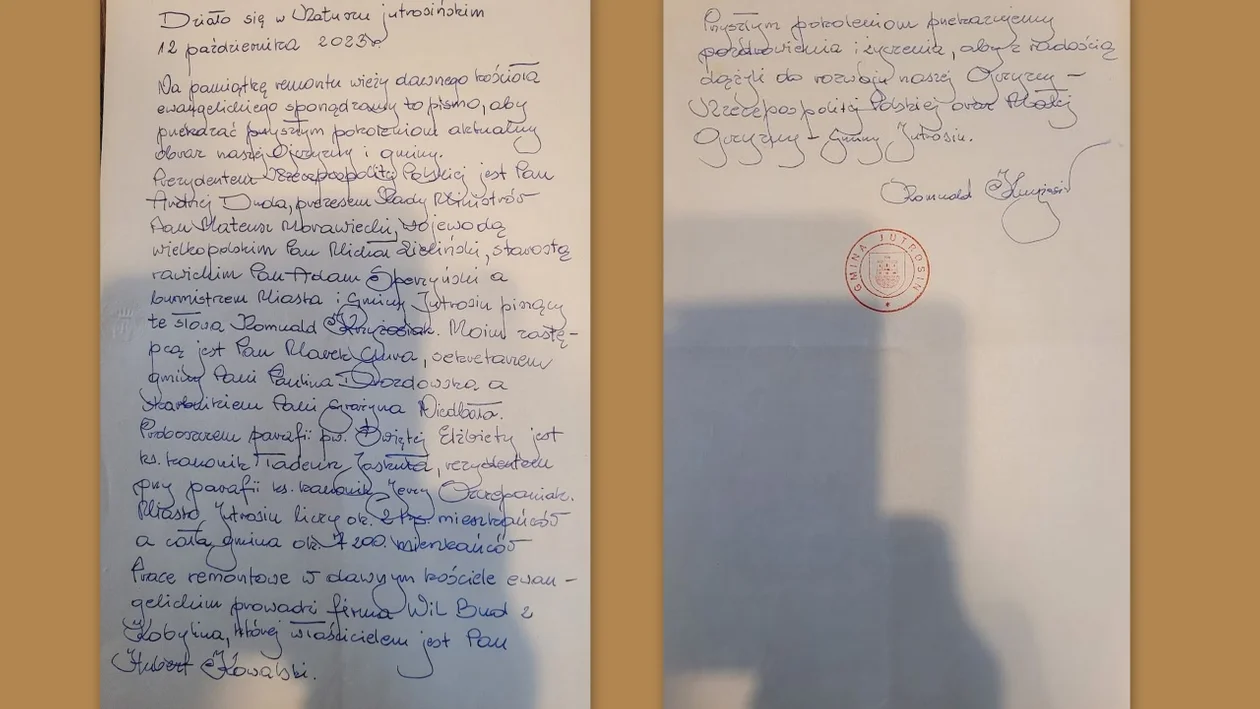 Działo się w Ratuszu jutrosińskim
12 października 2023r.
Na pamiątkę remontu wieży dawnego kościoła
ewangelickiego sporządzamy to pismo, aby
przekazać przyszłym pokoleniom aktualny
obraz naszej Ojczyzny i gminy.
Prezydentem Rzeczpospolitej Polskiej jest Pan
Andrzej Duda, prezesem Rady Ministrów
Pan Mateusz Morawiecki, wojewodą
wielkopolskim Pan Michał Zieliński, starostą
rawickim Pan Adam Sperzyński a
burmistrzem Miasta i Gminy Jutrosin piszący
te słowa Romuald Krzyżosiak. Moim zastę-
pcą jest Pan Marek Glura, sekretarzem
gminy Pani Paulina Drozdowska a
skarbnikiem Pani Grażyna Niedbała.
Proboszczem parafii pw. Świętej Elżbiety jest
ks. kanonik Tadeusz Jaskuła, rezydentem
przy parafii ks. kanonik Jerzy Szczepaniak.
Miasto Jutrosin liczy ok. 2 tys. mieszkańców
a cała gmina ok. 7 200. mieszkańców
Prace remontowe w dawnym kościele ewan-
gelickim prowadzi firma Wil Bud z
Kobylina, której właścicielem jest Pan
Hubert Kowalski.
Przyszłym pokoleniom przekazujemy
pozdrowienia i życzenia, aby z radością
dążyli do rozwoju naszej Ojczyzny -
Rzeczpospolitej Polskiej oraz Małej
Ojczyzny - Gminy Jutrosin.
Romuald Krzyżosiak
GMINA JUTROSIN